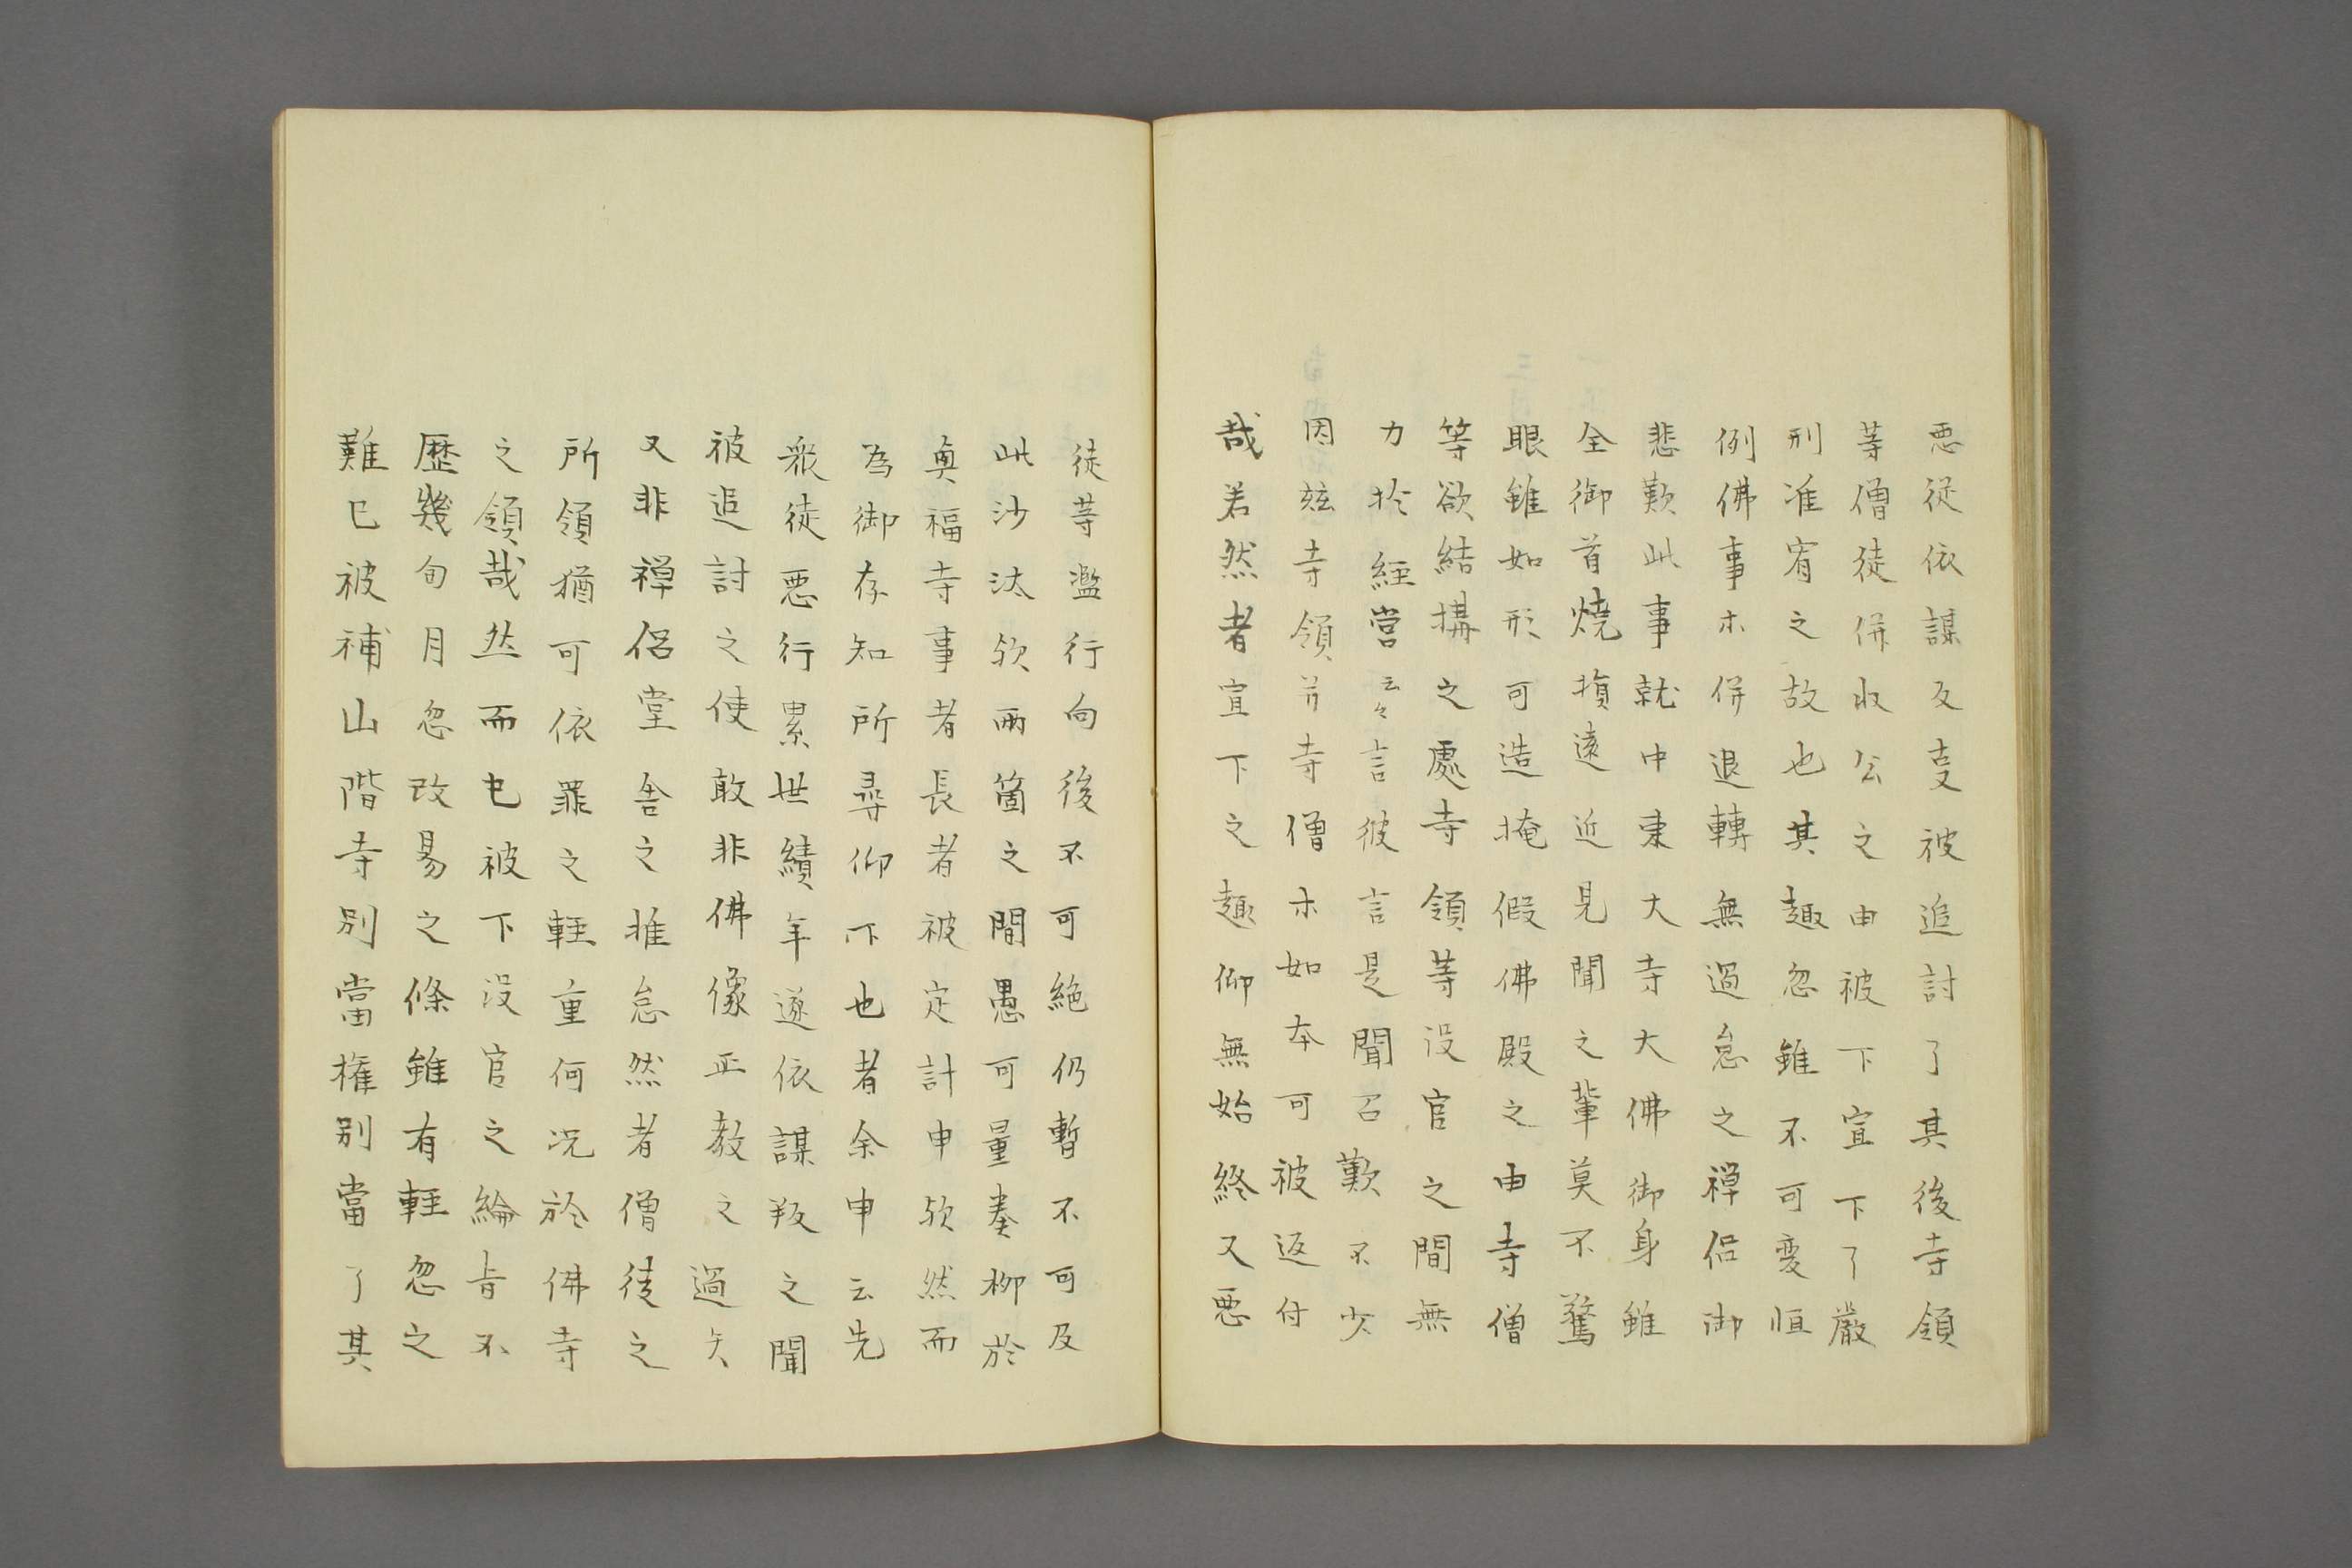 悪徒依謀反㕝被追討了其後寺領
等僧徒併収公之由被下宣下了嚴
刑准宥之故也其趣忽雖不可変恒
例佛事朩併退轉無過怠之禅侶御
悲歎此事就中東大寺大佛御身雖
全御首燒損遠近見聞之輩莫不驚
眼雖如形可造掩假佛殿之由寺僧
等欲結構之處寺領等没官之間無
力於經営云々言彼言是聞召歎不少
因玆寺領并寺僧朩如本可被返付
哉若然者宣下之趣仰無始終又悪
徒等濫行向後不可絶仍暫不可及
此沙汰欤兩箇之間愚可量奏柳於
興福寺事者長者被定計申欤然而
為御存知所尋仰下也者余申云先
衆徒悪行累世績年遂依謀叛之聞
被追討之使敢非佛像正教之過矢
又非禅侶堂舎之推怠然者僧徒之
所領猶可依罪之輕重何况於佛寺
之領哉然而已被下没官之綸旨不
歴幾旬月忽改易之條雖有輕忽之
難已被補山階寺別當権別當了其